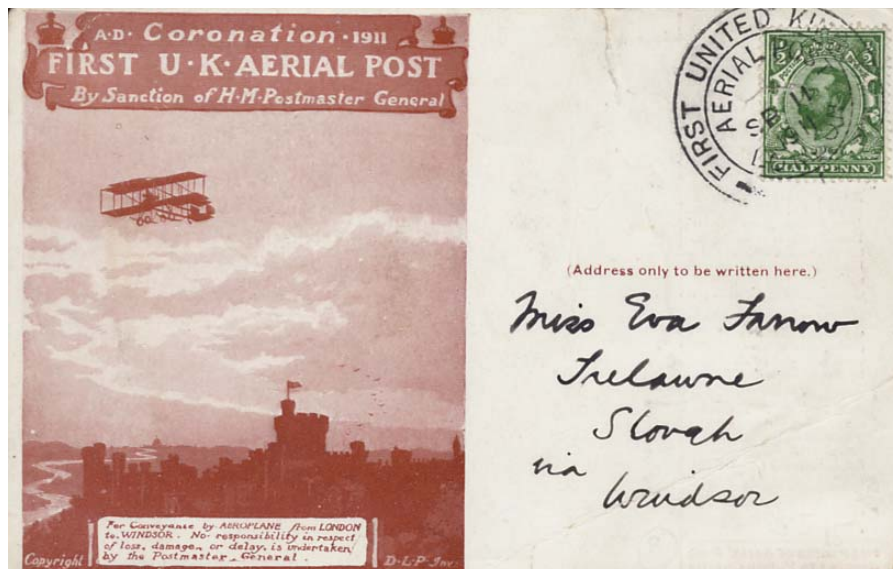 A·D· Coronation ·1911
FIRST U·K·AERIAL POST
By Sanction of H·M·Postmaster General
For Conveyance by AEROPLANE from LONDON
to WINDSOR. No responsibility in respect
of loss, damage, or delay, is undertaken
by the Postmaster General.
Copyright
D·L·P· Inv.
FIRST UNITED
AERIAL
½
½
HALFPENNY
(Address only to be written here.)
Miss Eva Farrow
Trelawne
Slough
via
Windsor